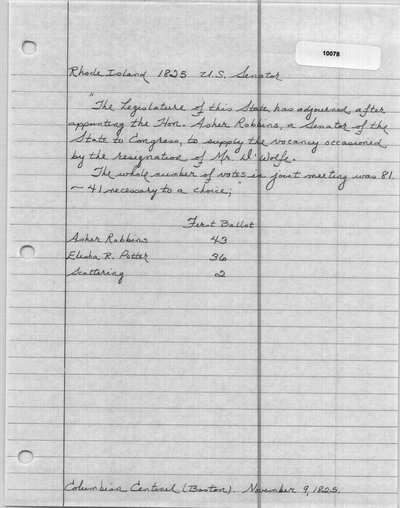 10078
Rhode Island 1825 U.S. Senator
"The Legislature of this State, has adjourned, after
appointing the Hon. Asher Robbins, a Senator of the
State to Congress, to supply the vacancy occasioned
by the resignation of Mr. D'Wolfe.
The whole number of votes in joint meeting was 81.
~ 41 necessary to a choice;"
First Ballot
Asher Robbins 43
Elisha R. Potter 36
Scattering 2
Columbian Centinel (Boston). November 9, 1825.